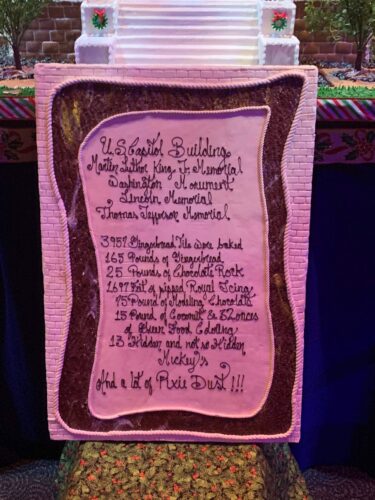 U.S Capitol Building
Martin Luther King Jr Memorial
Washington Monument
Lincoln Memorial
Thomas Jefferson Memorial
3957 Gingerbread Tile were baked
165 Pounds of Gingerbread
25 Pounds of Chocolate Rock
1697 Feet of piped Royal Icing
Pound of Modeling Chocolate
15 Pound of Coconut & 8 Ounces
of Green Food Coloring
13 Hidden and not so Hidden
Mickey's
And a lot of Pixie Dust !!!